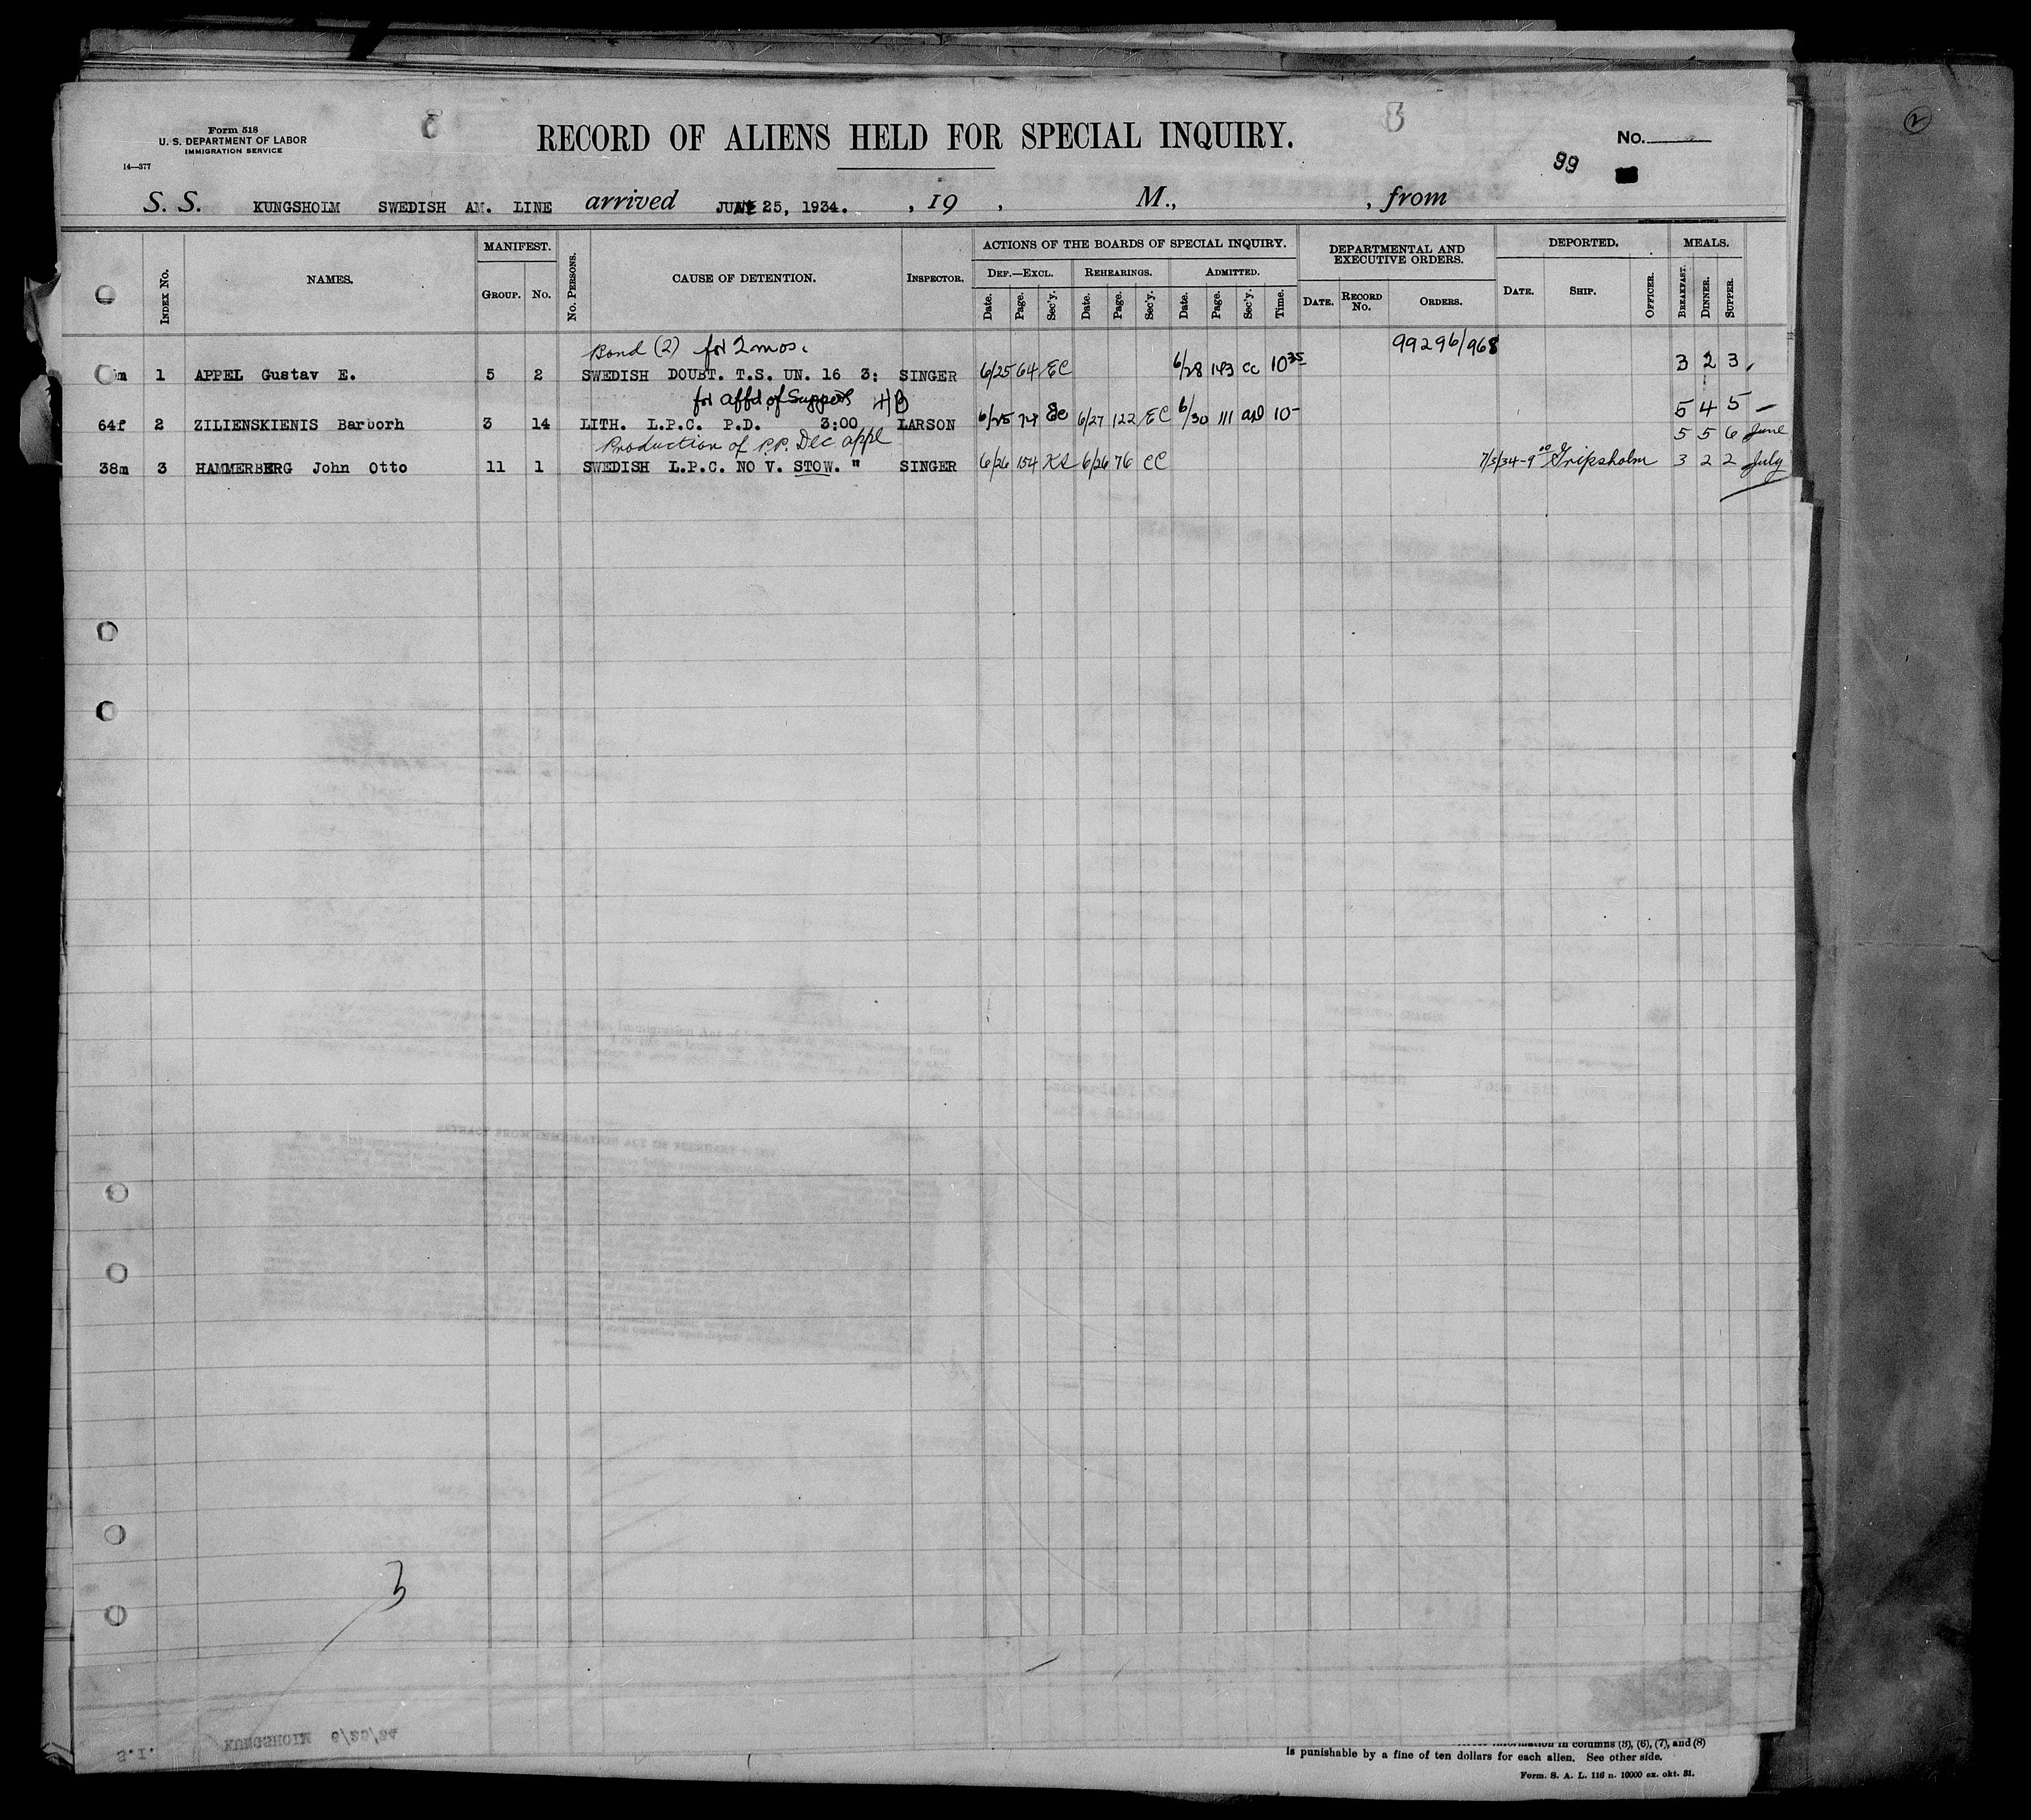 Form 518
U. S. DEPARTMENT OF LABOR
IMMIGRATION SERVICE
14—377
RECORD OF ALIENS HELD FOR SPECIAL INQUIRY.
No.
99
2
S. S. KUNGSHOLM SWEDISH AM. LINE arrived JUNE 25, 1934. , 19 , M., , from
INDEX No. NAMES. MANIFEST. GROUP. No. No. PERSONS. CAUSE OF DETENTION. INSPECTOR. ACTIONS OF THE BOARDS OF SPECIAL INQUIRY. DEPARTMENTAL AND EXECUTIVE ORDERS. DEPORTED. MEALS.
DEF.—EXCL. REHEARINGS. ADMITTED.
Date. Page. Sec'y. Date. Page. Sec'y. Date. Page. Sec'y. Time. DATE. RECORD No. ORDERS. DATE. SHIP. OFFICER. BREAKFAST. DINNER. SUPPER.
Bond (2) for 2 mos. 99296/968
m 1 APPEL Gustav E. 5 2 SWEDISH DOUBT. T.S. UN. 16 3: SINGER 6/25 64 EC 6/28 143 CC 10 35 3 2 3
for affd of Support HB
64f 2 ZILIENSKIENIS Barborh 3 14 LITH. L.P.C. P.D. 3:00 LARSON 6/25 74 EC 6/27 122 EC 6/30 111 10— 5 4 5 —
Production of P.P. Dec appl 5 5 6 June
38m 3 HAMMERBERG John Otto 11 1 SWEDISH L.P.C. NO V. STOW. " SINGER 6/26 154 KS 6/26 76 CC 7/5/34-9 00 Gripsholm 3 2 2 July
3
S.I. KUNGSHOLM 6/25/34
information in columns (5), (6), (7), and (8)
is punishable by a fine of ten dollars for each alien. See other side.
Form. S. A. L. 116 n. 10000 ex. okt. 31.